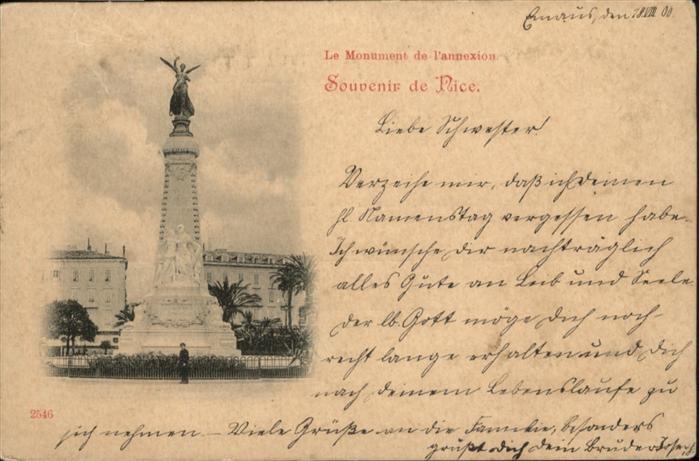 Emaus, den 28.VIII 00.
Le Monument de l'annexion.
Souvenir de Nice.
Liebe Schwester!
Verzeihe mir, daß ich deinen
hl. Namenstag vergessen habe.
Ich wünsche dir nachträglich
alles Gute an Leib und Seele
der lb. Gott möge dich noch-
recht lange erhalten und dich
nach deinem Lebenslaufe zu
sich nehmen. — Viele Grüße an die Familie, besonders
grüßt dich dein Bruder Josef
2546